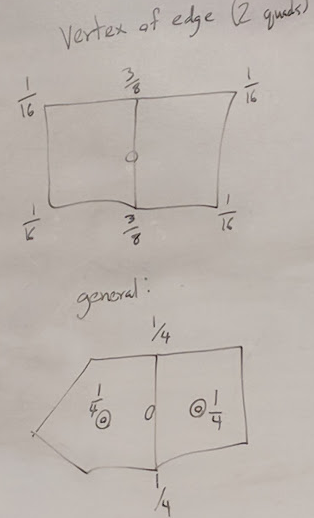 Vertex of edge (2 quads)
1/16 3/8 1/16
1/16 3/8 1/16
general:
1/4
1/4 1/4
1/4